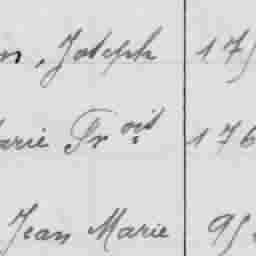 n, Joseph 175
arie Frçois 176
Jean Marie 95